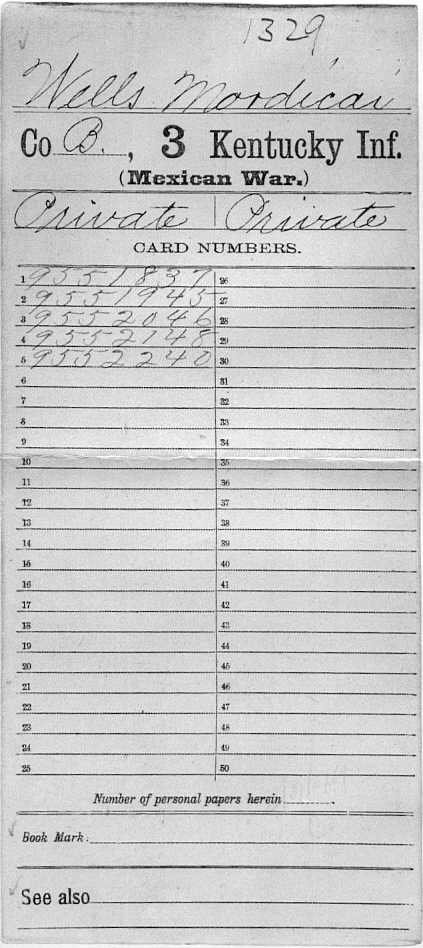 1329
Wells Mordicai
Co B., 3 Kentucky Inf.
(Mexican War.)
Private | Private
CARD NUMBERS.
1 9551837 26
2 9551945 27
3 9552046 28
4 9552148 29
5 9552240 30
6 31
7 32
8 33
9 34
10 35
11 36
12 37
13 38
14 39
15 40
16 41
17 42
18 43
19 44
20 45
21 46
22 47
23 48
24 49
25 50
Number of personal papers herein
Book Mark:
See also